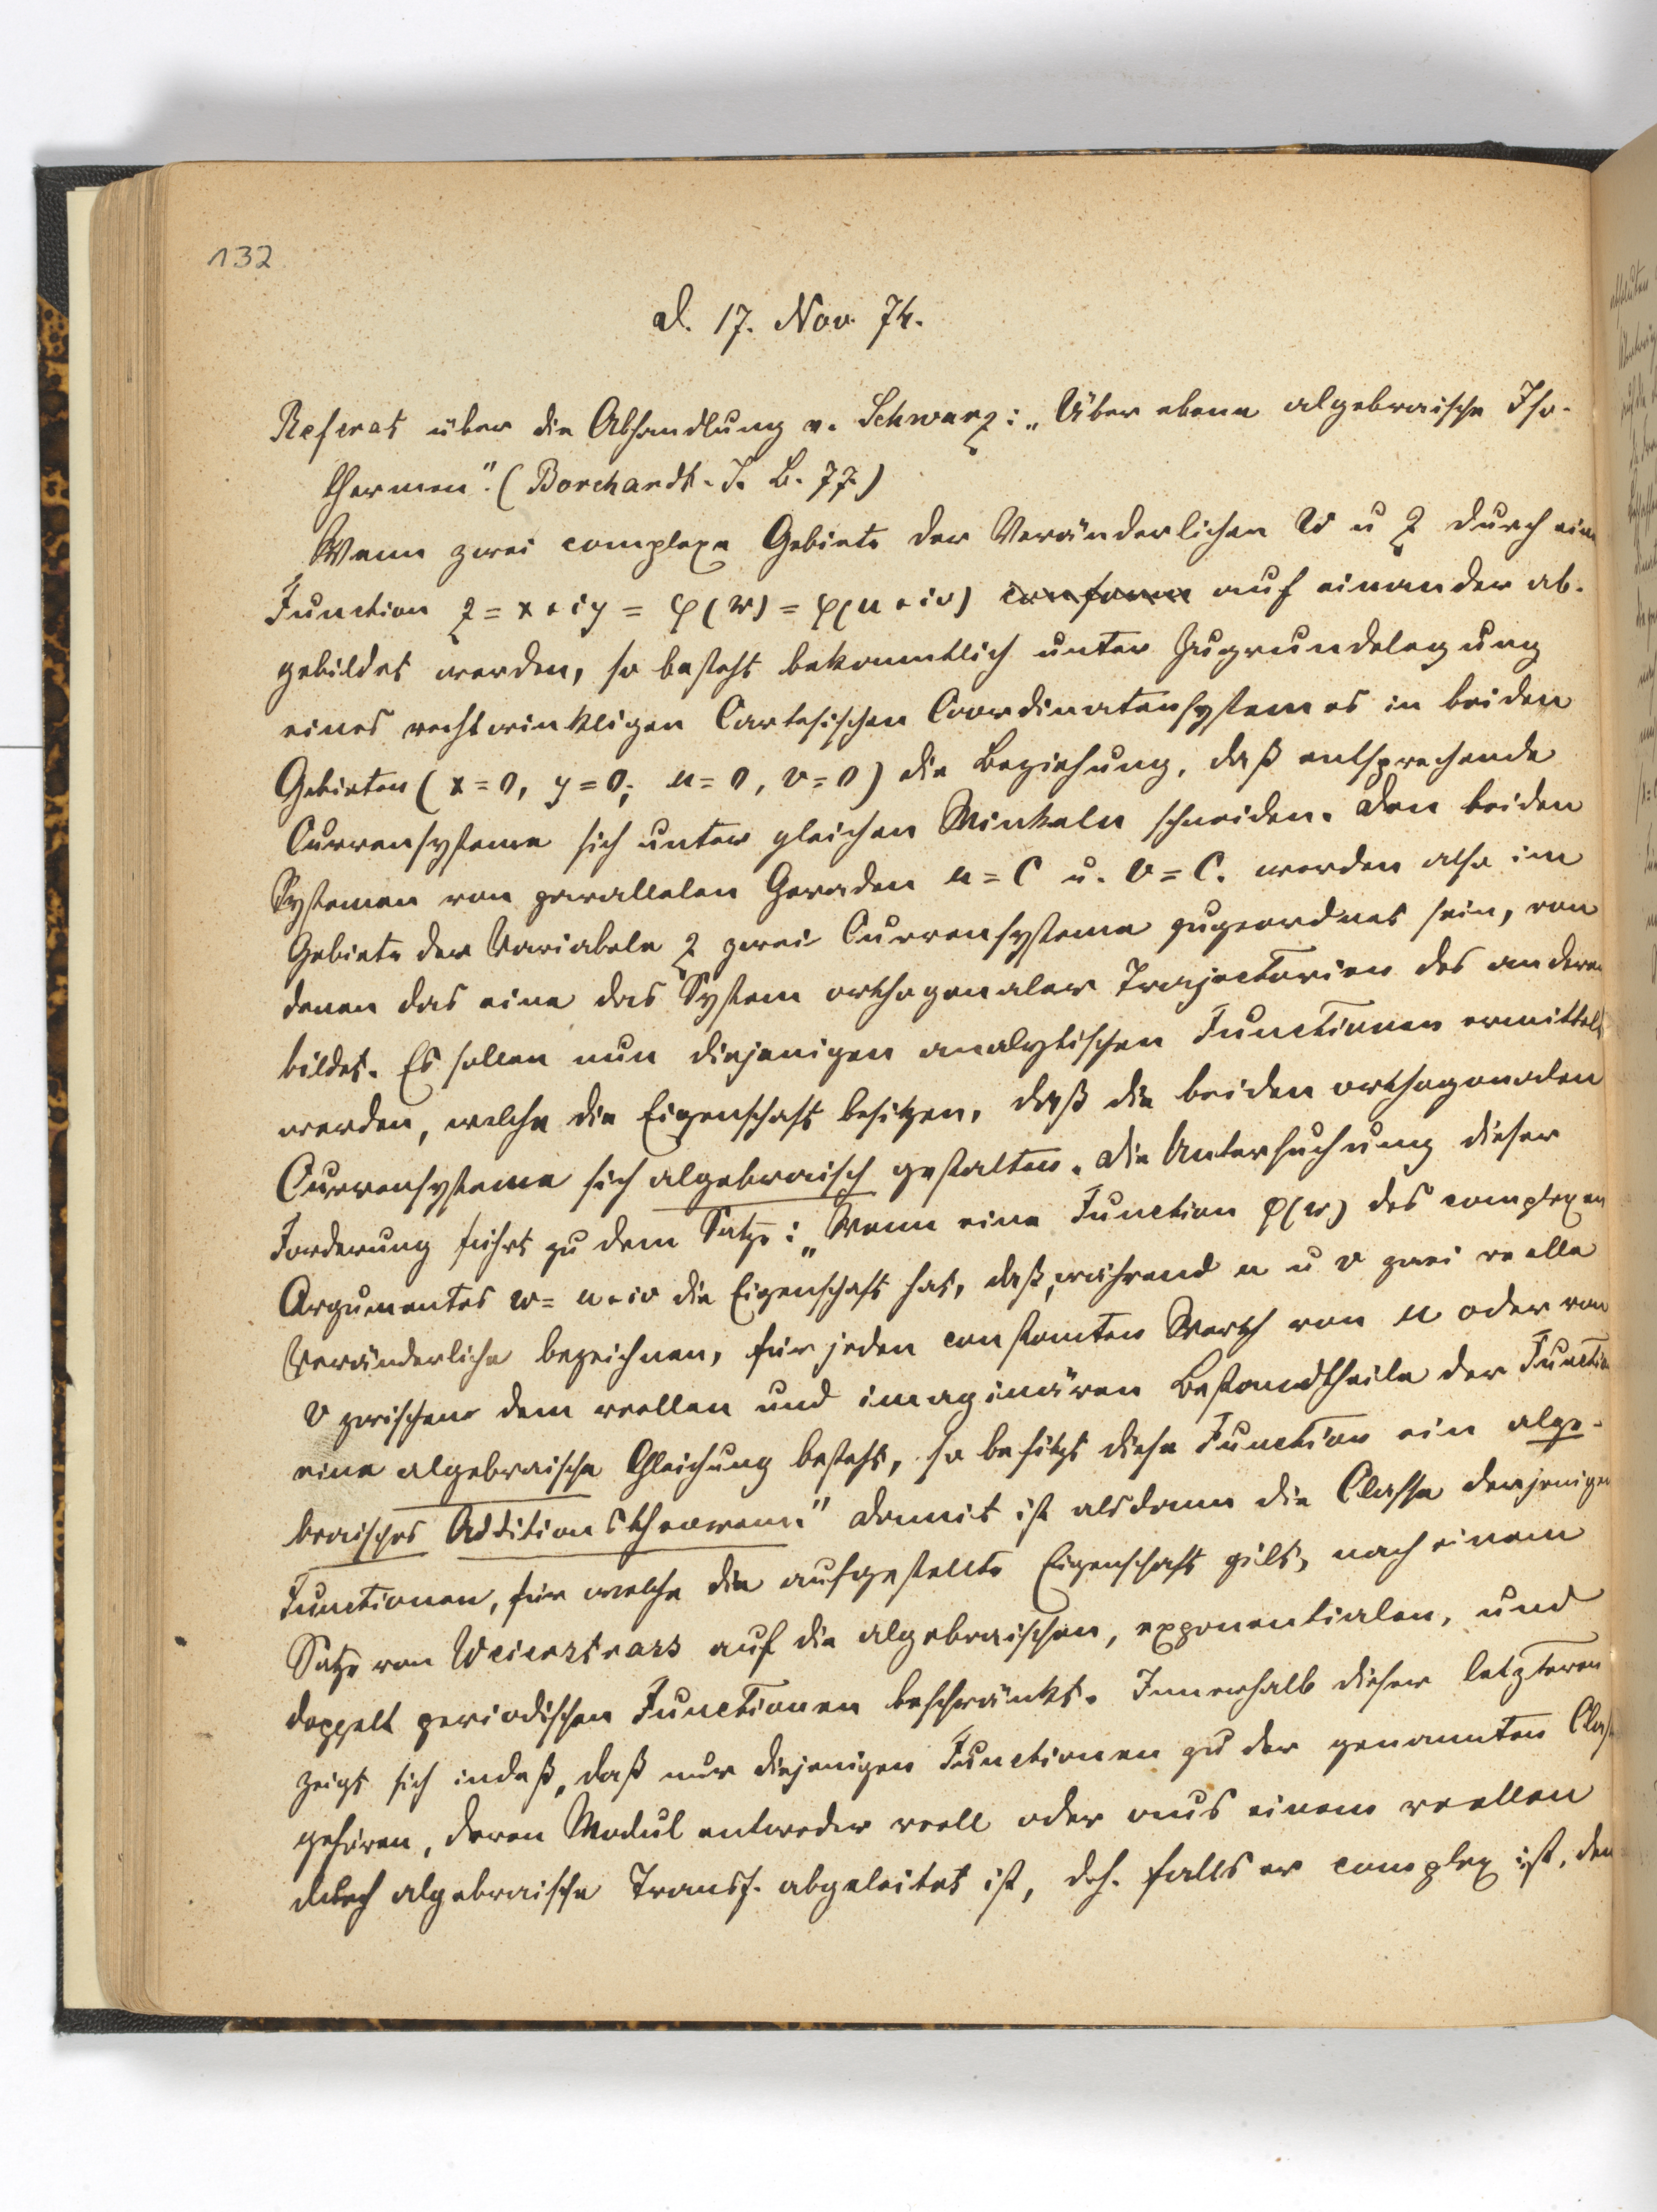 132
d. 17. Nov. 74.
Referat über die Abhandlung v. Schwarz: „Über ebene algebraische Iso-
thermen". (Borchardt. J. B. 77.)
Wenn zwei complexe Gebiete der Veränderlichen w u z durch eine
Function z = x + iy = φ(w) = φ(u + iv) conform auf einander ab-
gebildet werden, so besteht bekanntlich unter Zugrundelegung
eines rechtwinkligen Cartesischen Coordinatensystemes in beiden
Gebieten (x = 0, y = 0; u = 0, v = 0) die Beziehung, daß entsprechende
Curvensysteme sich unter gleichen Winkeln schneiden. Den beiden
Systemen von parallelen Geraden u = C u. v = C. werden also im
Gebiete der Variabeln z zwei Curvensysteme zugeordnet sein, von
denen das eine das System orthogonaler Trajectorien des anderen
bildet. Es sollen nun diejenigen analytischen Functionen ermittelt
werden, welche die Eigenschaft besitzen, daß die beiden orthogonalen
Curvensysteme sich algebraisch gestalten. Die Untersuchung dieser
Forderung führt zu dem Satze: „Wenn eine Function φ(w) des complexen
Argumentes w = u + iv die Eigenschaft hat, daß, während u u v zwei reelle
Veränderliche bezeichnen, für jeden constanten Werth von u oder von
v zwischen dem reellen und imaginären Bestandtheile der Function
eine algebraische Gleichung besteht, so besitzt diese Function ein alge-
braisches Additionstheorem." Damit ist alsdann die Classe derjenigen
Functionen, für welche die aufgestellte Eigenschaft gilt, nach einem
Satze von Weierstrass auf die algebraischen, exponentialen, und
doppelt periodischen Functionen beschränkt. Innerhalb dieser letzteren
zeigt sich indeß, daß nur diejenigen Functionen zu der genannten Classe
gehören, deren Modul entweder reell oder aus einem reellen
durch algebraische Transf. abgeleitet ist, d.h. falls er complex ist, den